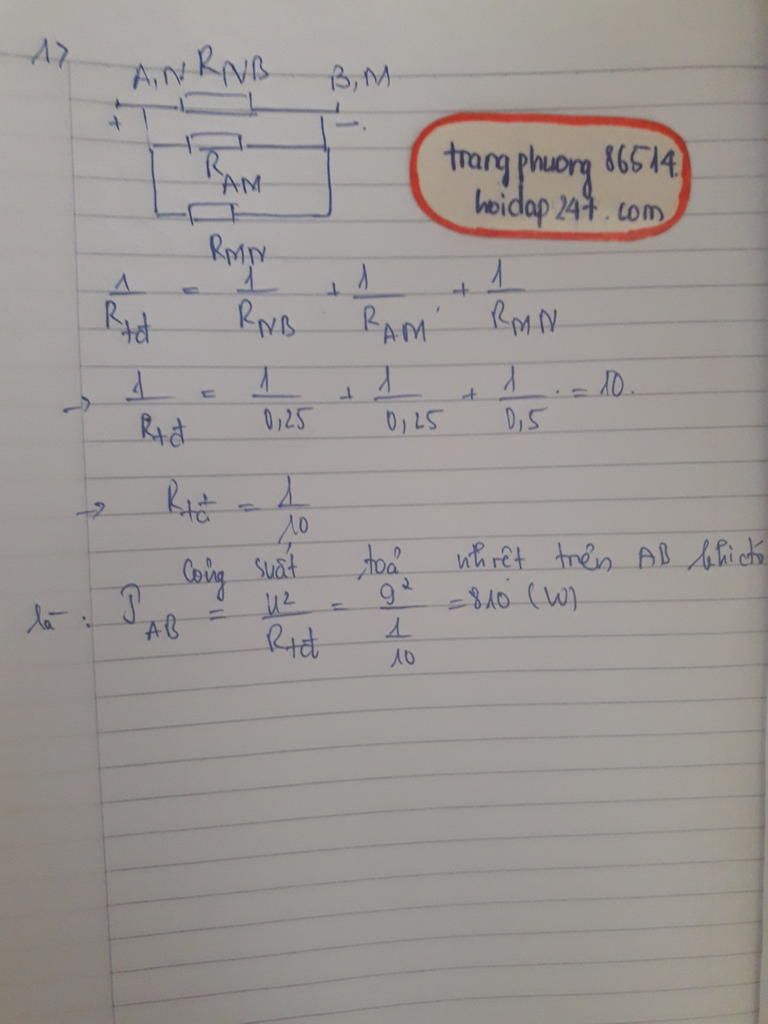 1>
A,N R_NB B,M
+ -
R_AM
R_MN
trangphuong 86514
hoidap247.com
1/R_tđ = 1/R_NB + 1/R_AM + 1/R_MN
→ 1/R_tđ = 1/0,25 + 1/0,25 + 1/0,5 = 10.
→ R_tđ = 1/10
Công suất toả nhiệt trên AB khi đó
là : P_AB = U²/R_tđ = 9²/(1/10) = 810 (W)